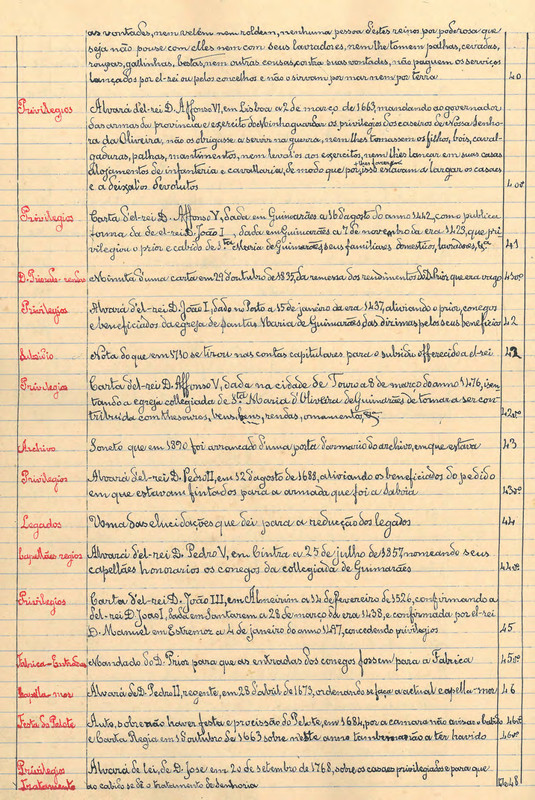 as vontades, nem velem nem roldem, nenhuma pessoa d'estes reinos por poderosa que
seja não pouse com elles nem com seus lavradores, nem lhe tomem palhas, cevadas,
roupas, gallinhas, bestas, nem outras cousas, contra suas vontades, não paguem os serviços
lançados por el-rei ou pelos concelhos e não o sirvam por mar nem por terra 40
Privilegios Alvará d'el-rei D. Affonso VI, em Lisboa a 2 de março de 1663, mandando ao governador
das armas da provincia e exercito do Minho guardar os privilegios dos caseiros de Nossa Senho-
ra da Oliveira, não os obrigasse a servir na guerra, nem lhes tomassem os filhos, bois, caval-
gaduras, palhas, mantimentos, nem leval-os aos exercitos, nem lhes lançar em suas casas
alojamentos de infanteria e cavallaria, de modo que por isso estavam a largar os casaes
e a deixal-os devolutos 40vº
Privilegios Carta d'el-rei D. Affonso V, dada em Guimarães a 16 d'agosto do anno 1442, com a publica
forma da de el-rei D. João I, dada em Guimarães a 7 de novembro da era 1423, que pri-
vilegiou o prior e cabido de Stª Maria de Guimarães, seus familiares, domesticos, lavradores, etª 41
D. Priorado-rendas Minuta d'uma carta em 29 d'outubro de 1835, da remessa dos rendimentos do D. Prior que era vago 41vº
Privilegios Alvará d'el-rei D. João I, dado no Porto a 15 de janeiro da era 1437, aliviando o prior, conegos
e beneficiados da egreja de Santa Maria de Guimarães das dizimas pelos seus beneficios 42
Subsidio Nota do que em 1710 se tirou nas contas capitulares para o subsidio offerecido a el-rei 42
Privilegios Carta d'el-rei D. Affonso V, dada na cidade de Touro a 8 de março do anno 1476, isen-
tando a egreja collegiada de Stª Maria d'Oliveira de Guimarães de tornar a ser con-
tribuida com thesouros, bens, rendas, ornamentos, &ª 42vº
Archivo Soneto que em 1890 foi arrancado d'uma porta d'armario do archivo, em que estava 43
Privilegios Alvará d'el-rei D. Pedro II, em 12 d'agosto de 1688, aliviando os beneficiados do pedido
em que estavam fintados para a armada que foi a 43vº
Legados Uma das elucidações que dei para a reducção dos legados 44
Capellães regios Alvará d'el-rei D. Pedro V, em Cintra a 25 de julho de 1857 nomeando seus
capellães honorarios os conegos da collegiada de Guimarães 44vº
Privilegios Carta d'el-rei D. João III, em Almeirim a 14 de fevereiro de 1526, confirmando a
del-rei D. João I, dada em Santarem a 28 de março da era 1438, e confirmada por el-rei
D. Manuel em Estremoz a 4 de janeiro do anno 1497, concedendo privilegios 45
Fabrica-Entradas Mandado do D. Prior para que as entradas dos conegos fossem para a Fabrica 45vº
Capella-mor Alvará de D. Pedro II, regente, em 28 d'abril de 1673, ordenando se faça a actual capella-mor 46
Festa do Pelote Auto, sobre não haver festa e procissão do Pelote, em 1684, por a camara não avisar o Cabido 46vº
e Carta Regia em 18 outubro de 1663 sobre neste anno tambem não a ter havido 46vº
Privilegios Alvará de lei, de D. José em 20 de setembro de 1768, sobre os casaes privilegiados e para que
Tratamento ao cabido se dê o tratamento de senhoria 47 e 48